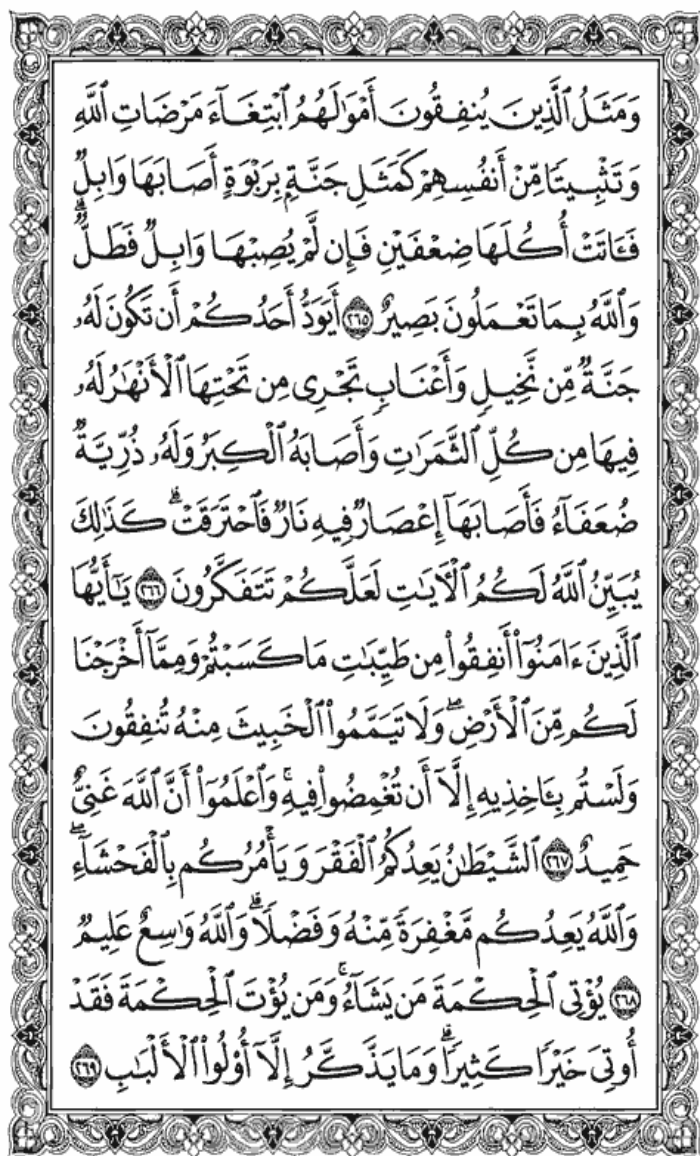 وَمَثَلُ ٱلَّذِينَ يُنفِقُونَ أَمْوَٰلَهُمُ ٱبْتِغَآءَ مَرْضَاتِ ٱللَّهِ
وَتَثْبِيتًا مِّنْ أَنفُسِهِمْ كَمَثَلِ جَنَّةٍۭ بِرَبْوَةٍ أَصَابَهَا وَابِلٌ
فَـَٔاتَتْ أُكُلَهَا ضِعْفَيْنِ فَإِن لَّمْ يُصِبْهَا وَابِلٌ فَطَلٌّ ۗ
وَٱللَّهُ بِمَا تَعْمَلُونَ بَصِيرٌ ﴿٢٦٥﴾ أَيَوَدُّ أَحَدُكُمْ أَن تَكُونَ لَهُۥ
جَنَّةٌ مِّن نَّخِيلٍ وَأَعْنَابٍ تَجْرِى مِن تَحْتِهَا ٱلْأَنْهَٰرُ لَهُۥ
فِيهَا مِن كُلِّ ٱلثَّمَرَٰتِ وَأَصَابَهُ ٱلْكِبَرُ وَلَهُۥ ذُرِّيَّةٌ
ضُعَفَآءُ فَأَصَابَهَآ إِعْصَارٌ فِيهِ نَارٌ فَٱحْتَرَقَتْ ۗ كَذَٰلِكَ
يُبَيِّنُ ٱللَّهُ لَكُمُ ٱلْـَٔايَٰتِ لَعَلَّكُمْ تَتَفَكَّرُونَ ﴿٢٦٦﴾ يَٰٓأَيُّهَا
ٱلَّذِينَ ءَامَنُوٓا۟ أَنفِقُوا۟ مِن طَيِّبَٰتِ مَا كَسَبْتُمْ وَمِمَّآ أَخْرَجْنَا
لَكُم مِّنَ ٱلْأَرْضِ ۖ وَلَا تَيَمَّمُوا۟ ٱلْخَبِيثَ مِنْهُ تُنفِقُونَ
وَلَسْتُم بِـَٔاخِذِيهِ إِلَّآ أَن تُغْمِضُوا۟ فِيهِ ۚ وَٱعْلَمُوٓا۟ أَنَّ ٱللَّهَ غَنِىٌّ
حَمِيدٌ ﴿٢٦٧﴾ ٱلشَّيْطَٰنُ يَعِدُكُمُ ٱلْفَقْرَ وَيَأْمُرُكُم بِٱلْفَحْشَآءِ ۖ
وَٱللَّهُ يَعِدُكُم مَّغْفِرَةً مِّنْهُ وَفَضْلًا ۗ وَٱللَّهُ وَٰسِعٌ عَلِيمٌ
﴿٢٦٨﴾ يُؤْتِى ٱلْحِكْمَةَ مَن يَشَآءُ ۚ وَمَن يُؤْتَ ٱلْحِكْمَةَ فَقَدْ
أُوتِىَ خَيْرًا كَثِيرًا ۗ وَمَا يَذَّكَّرُ إِلَّآ أُو۟لُوا۟ ٱلْأَلْبَٰبِ ﴿٢٦٩﴾